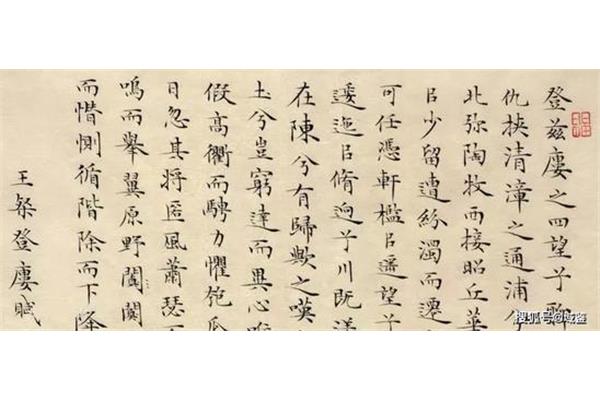 登兹廔之四望兮聊
仇挾清漳之通浦兮
北弥陶牧西接昭丘華
㠯少留遭紛濁而遷
可任憑軒檻㠯遥望兮
逶迆㠯脩迥兮川既漾
在陳兮有歸歟之嘆
土兮豈窮達而異心唯
假高衢而騁力懼匏瓜
日忽其將匿風蕭瑟而
鳴而舉翼原野闃
而憯惻循階除而下降
王粲登廔賦
搜狐号@